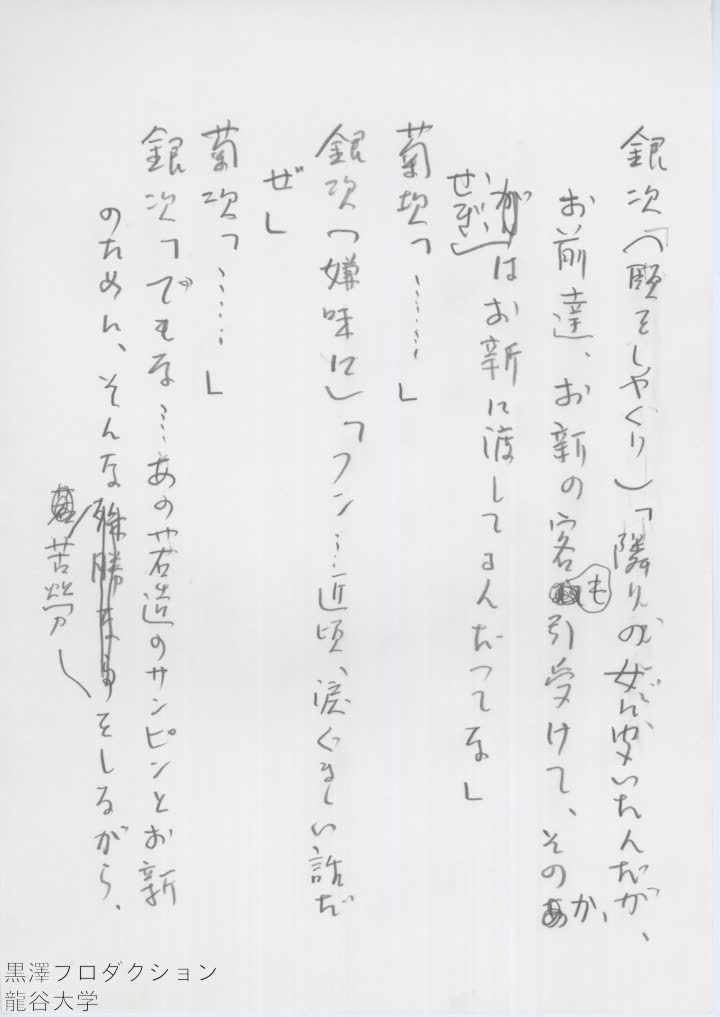 銀次（顋をしゃくり）「隣りの女に聞いたんだが、
お前達、お新の客も引受けて、そのか
せぎはお新に渡してるんだってな」
菊次「……」
銀次（嫌味に）「フン…近頃、涙ぐましい話だ
ぜ」
菊次「……」
銀次「でもな…あの若造のサンピンとお新
のためん、そんな苦労をしるがら、
黒澤プロダクション
龍谷大学